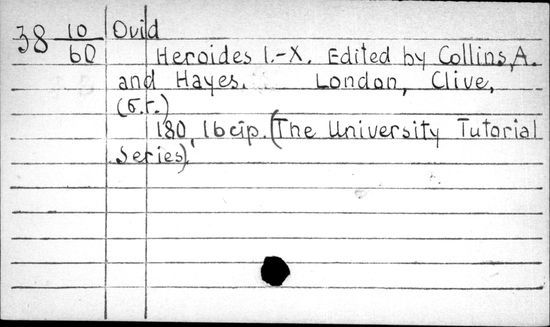 38 10/60 Ovid
Heroides I.-X. Edited by Collins, A.
and Hayes. London, Clive,
180, 16 c
(The University Tutorial
Series).